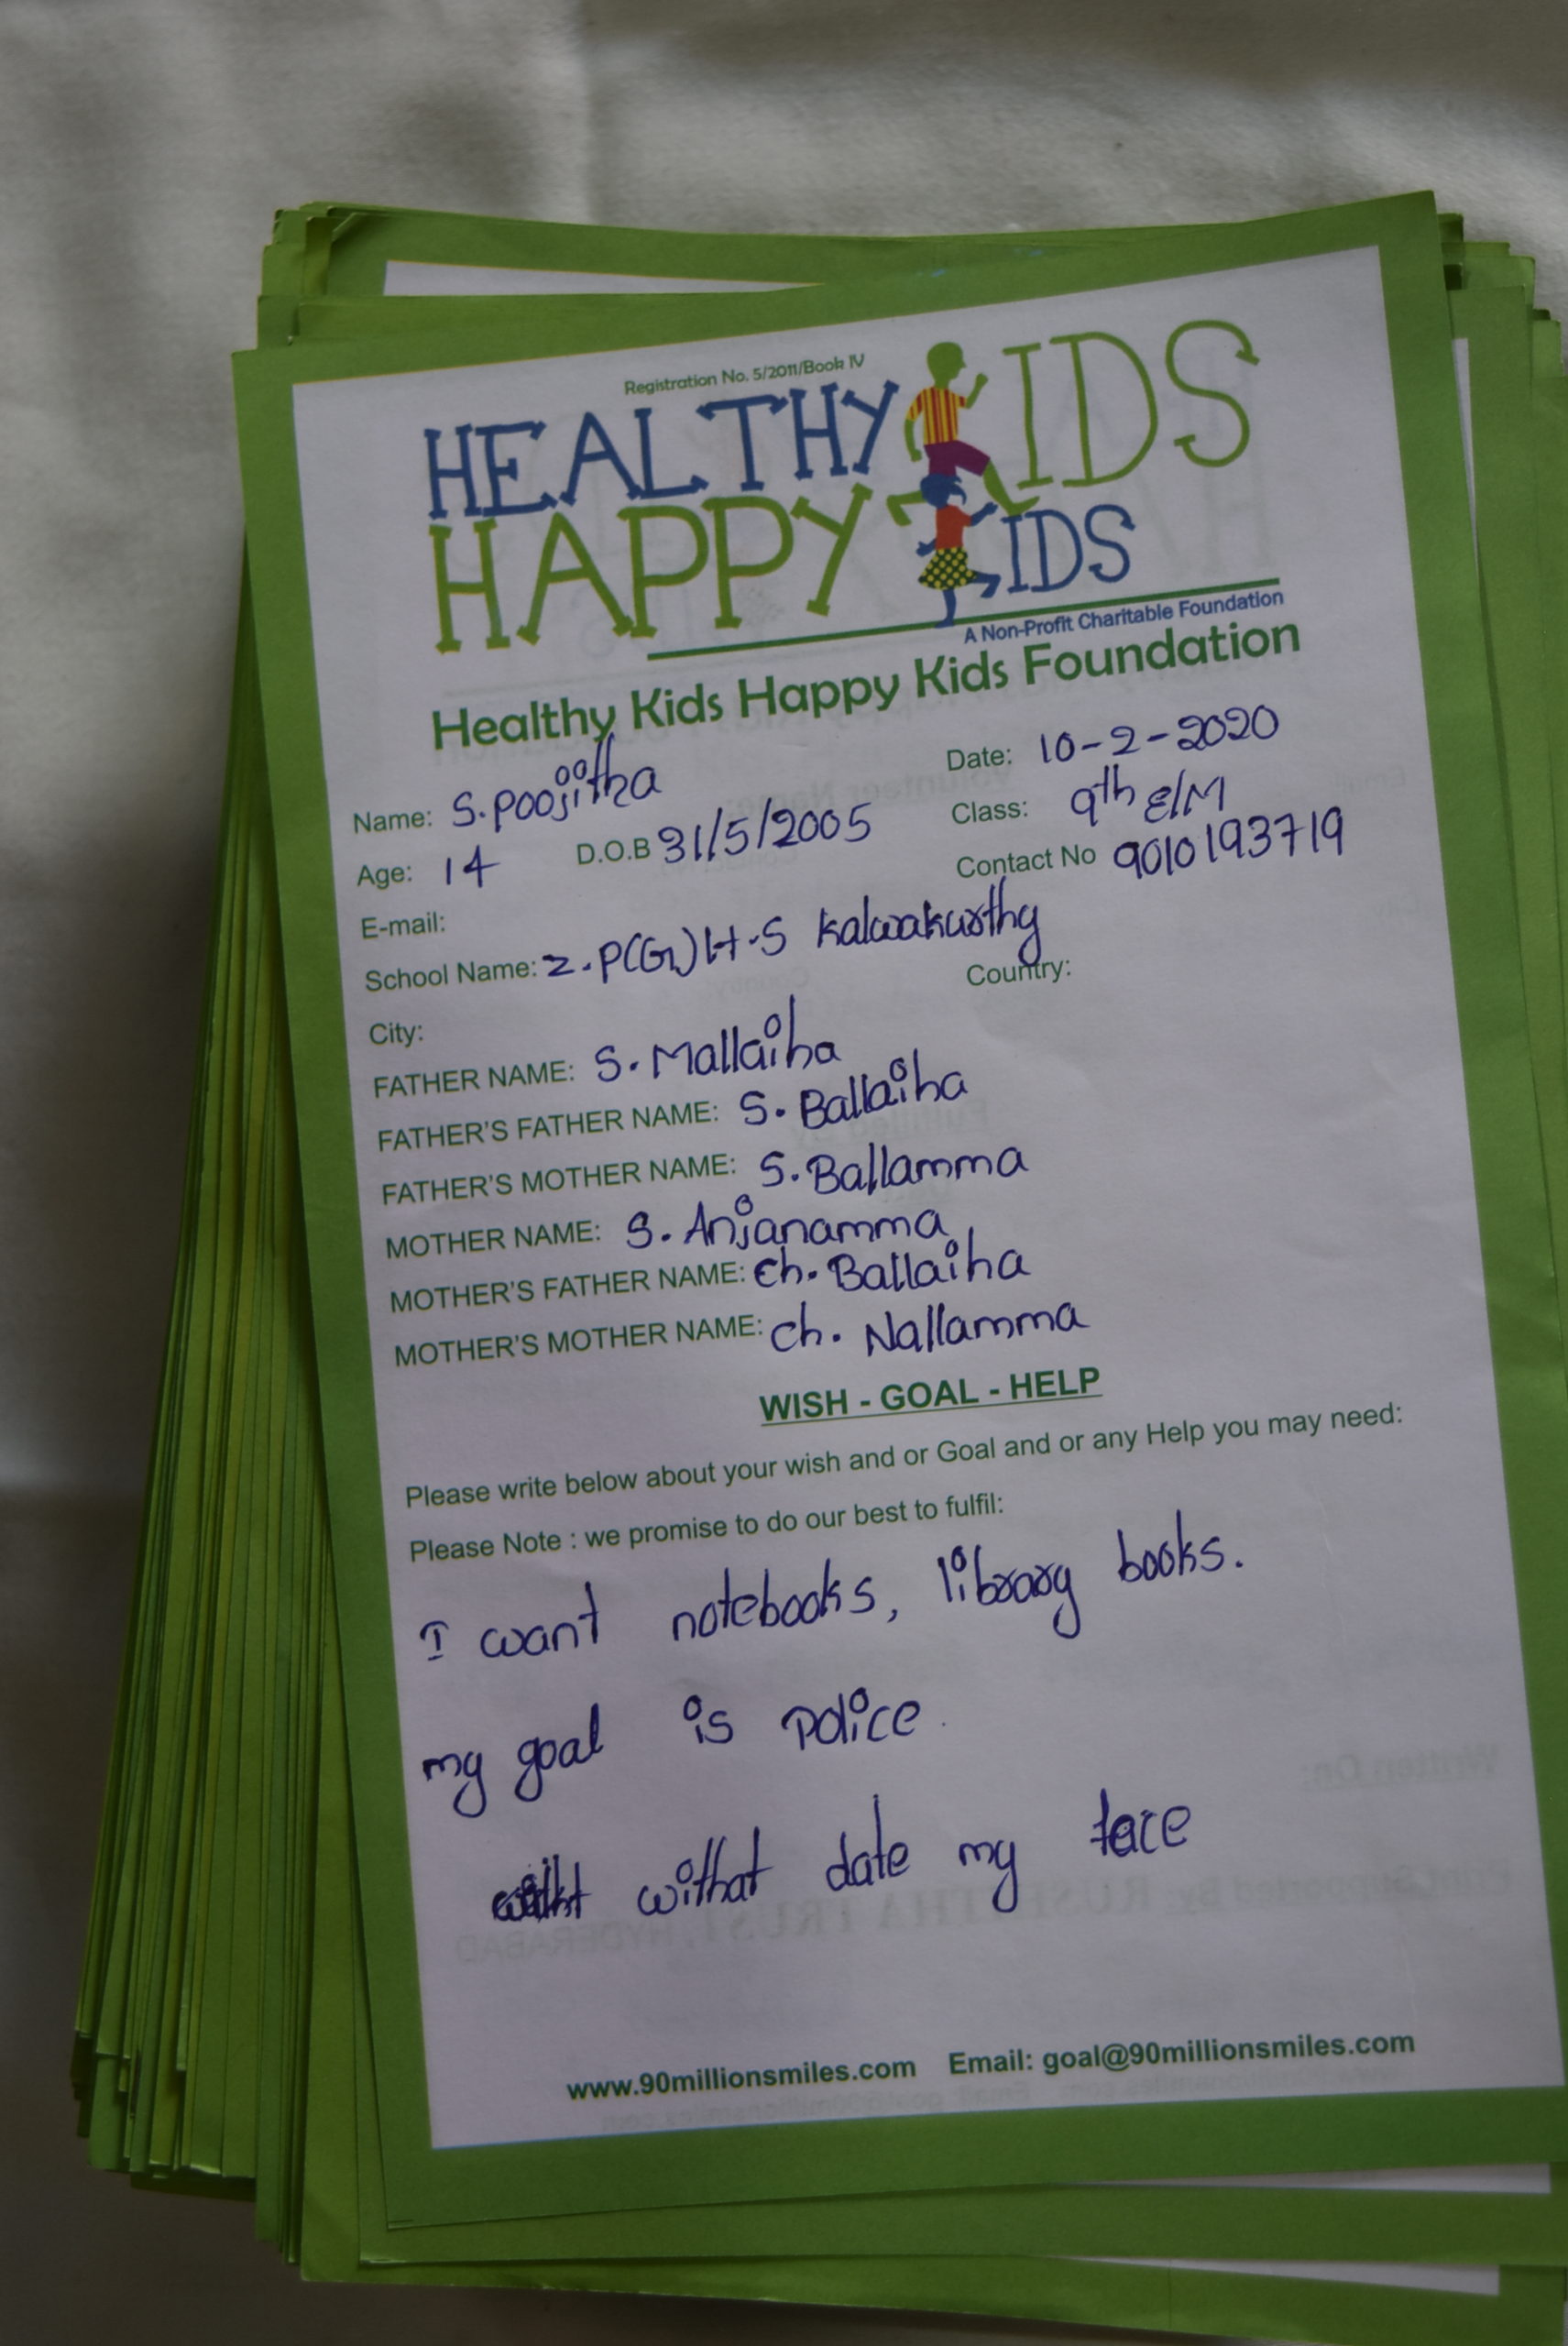 Registration No. 5/2011/Book IV
HEALTHY KIDS
HAPPY KIDS
A Non-Profit Charitable Foundation
Healthy Kids Happy Kids Foundation
Date: 10-2-2020
Name: S.poojitha
Class: 9th E/M
Age: 14 D.O.B 31/5/2005
Contact No 9010193719
E-mail:
School Name: Z.P(G)H.S kalwakurthy
City: Country:
FATHER NAME: S. Mallaiha
FATHER'S FATHER NAME: S. Ballaiha
FATHER'S MOTHER NAME: S. Ballamma
MOTHER NAME: S. Anjanamma
MOTHER'S FATHER NAME: Ch. Ballaiha
MOTHER'S MOTHER NAME: Ch. Nallamma
WISH - GOAL - HELP
Please write below about your wish and or Goal and or any Help you may need:
Please Note : we promise to do our best to fulfil:
I want notebooks, library books.
my goal is police.
withat date my
www.90millionsmiles.com Email: goal@90millionsmiles.com